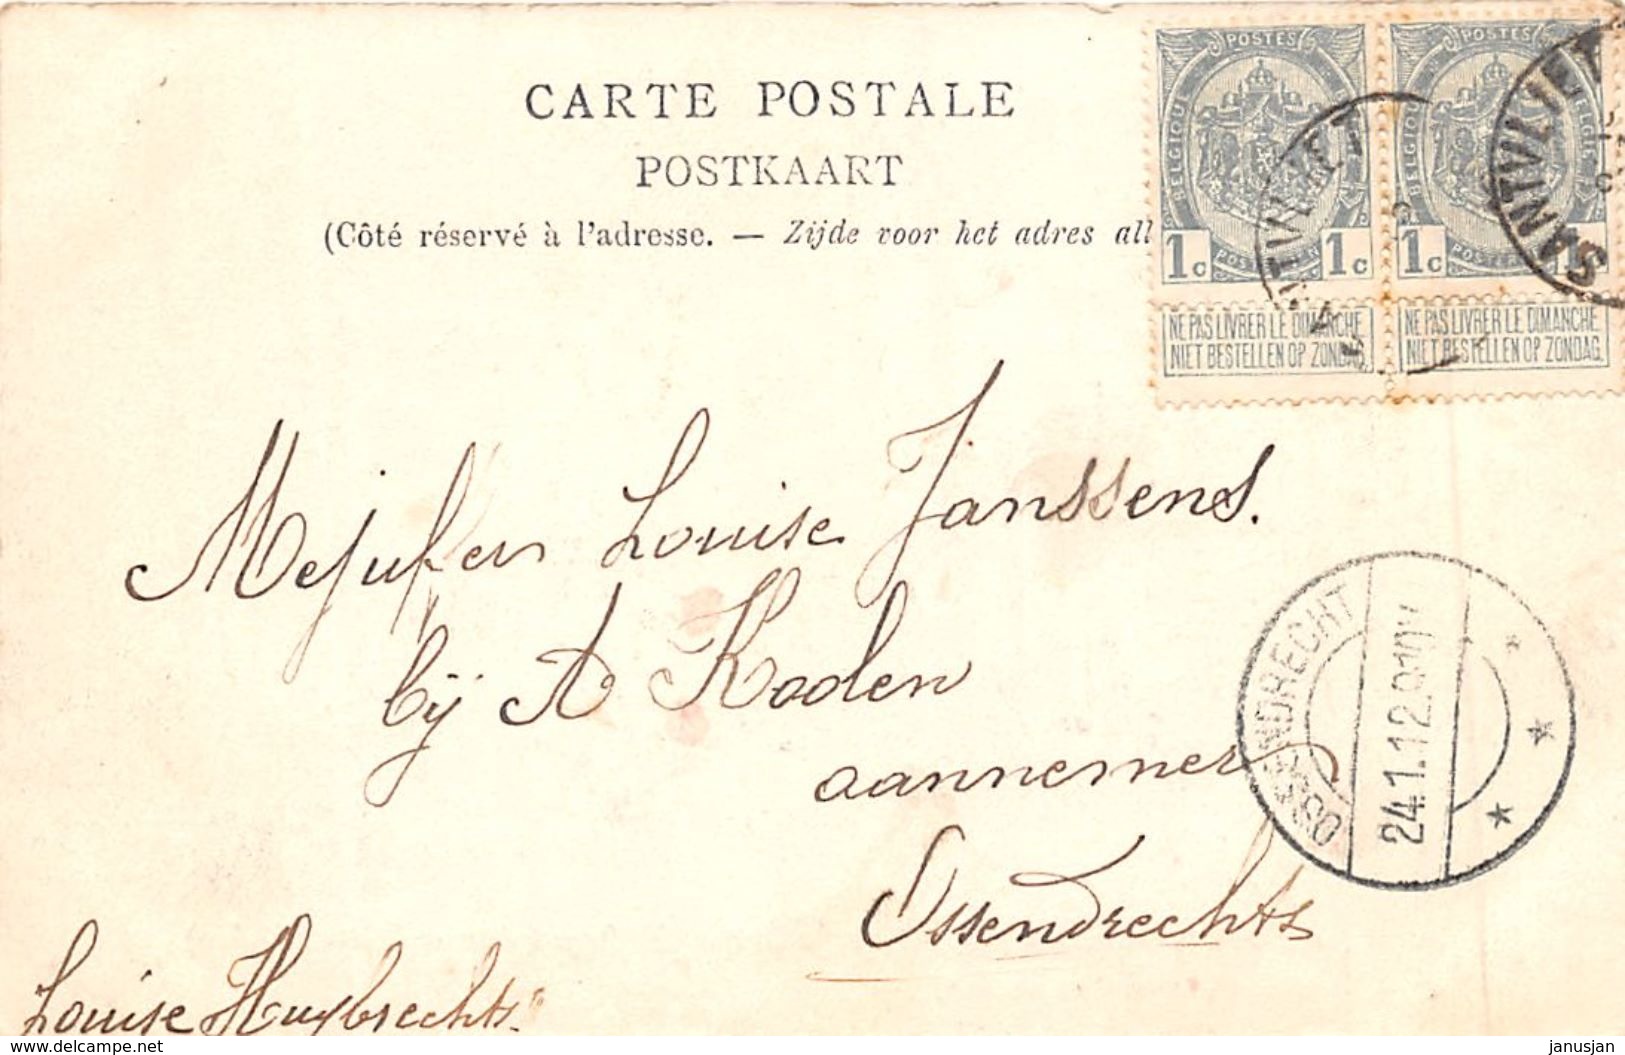 CARTE POSTALE
POSTKAART
(Côté réservé à l'adresse. — Zijde voor het adres all
POSTES
BELGIQUE
1c 1c
POSTERIJEN
NE PAS LIVRER LE DIMANCHE
NIET BESTELLEN OP ZONDAG.
POSTES
BELGIQUE BELGIË
1c
NE PAS LIVRER LE DIMANCHE
NIET BESTELLEN OP ZONDAG.
SANTVLIET
SANTVLIET
Mejufer Louise Janssens.
bij A Koden
aannemer
Ossendrechts
OSSENDRECHT
24.1.12.
Louise Huybrechts.
www.delcampe.net
janusjan